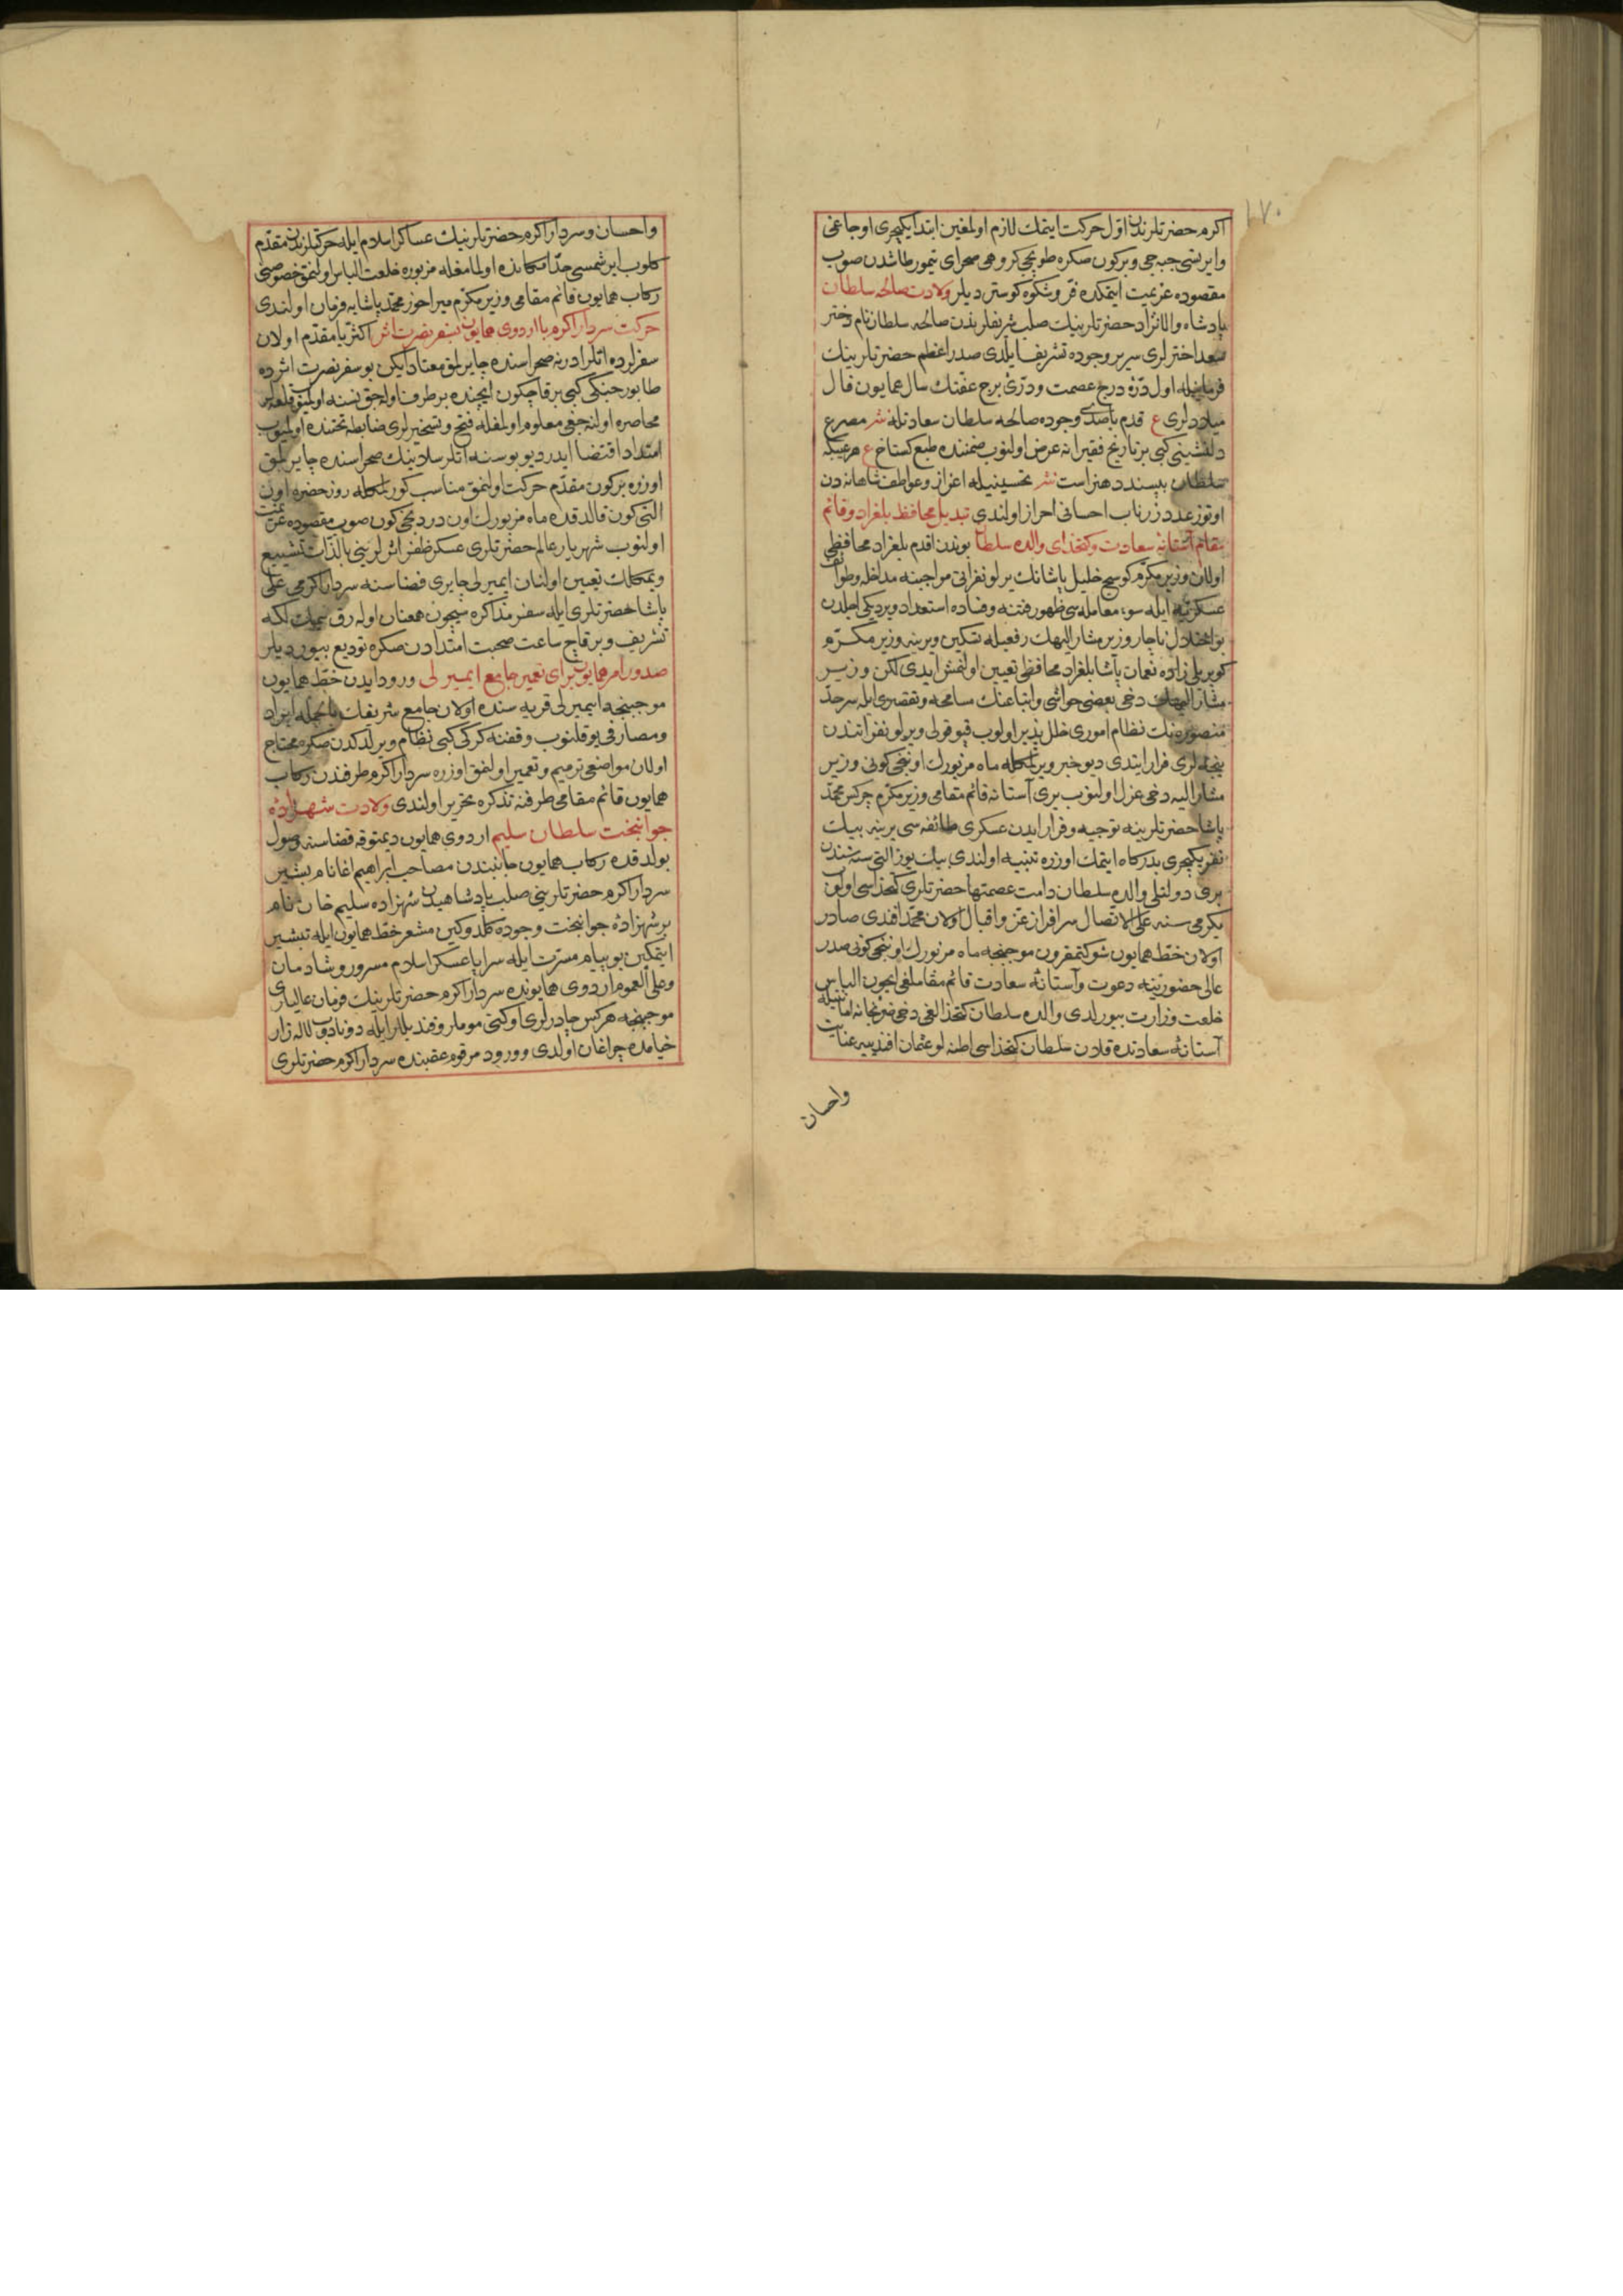 ١٧٠
اكرم حضرتلرندن اوّل حركت ايتمك لازم اولمغين ابتدا يكيچرى اوجاغى
وايرتسى جبه جى وبركون صكره طوپجى كروهى صحراى تيمورطاشدن صوب
مقصوده عزيمت ايتمكده فرّ وشكوه كوستر ديلر ولادت صالحه سلطان
پادشاه والانژاد حضرتلرينك صلب شريفلرندن صالحه سلطان نام دختر
سعد اخترلرى سرير وجوده تشريف ايلدى صدر اعظم حضرتلرينك
فرمانيله اول درّهٔ درج عصمت ودرّئ برج عفتك سال همايون فال
ميلادلرى ع قدم باصدى وجوده صالحه سلطان سعادتله نثر مصرع
دلنشينى كبى بر تاريخ فقيرانه عرض اولنوب ضمننده طبع كستاخ ع هر عيبكه
سلطان بپسندد هنراست نثر تحسينيله اعزاز وعواطف شاهانه دن
اوتوز عدد زرناب احسانى احراز اولندى تبديل محافظ بلغراد وقائم
مقام آستانهٔ سعادت وكتخداى والده سلطان بوندن اقدم بلغراد محافظى
اولان وزير مكرّم كوسج خليل پاشانك يرلو نفراتى مواجبنه مداخله وطوائف
عسكريّه ايله سوء معامله سى ظهور فتنه وفساده استعداد ويرديكى اجلدن
بو اختلال ناچار وزير مشار اليهك رفعيله تسكين ويرينه وزير مكرّم
كوپريلى زاده نعمان پاشا بلغراد محافظى تعيين اولنمش ايدى لكن وزير
مشار اليهك دخى بعضى حواشى واتباعنك مسامحه وتقصيرى ايله سرحدّ
منصوره نك نظام امورى خلل پذير اولوب قپو قولى ويرلو نفراتندن
نيجه لرى فرار ايتدى ديو خبر ويرلمكله ماه مزبورك اوننجى كونى وزير
مشار اليه دخى عزل اولنوب يرى آستانه قائم مقامى وزير مكرّم چركس محمّد
پاشا حضرتلرينه توجيه وفرار ايدن عسكرى طائفه سى يرينه بيك
نفر يكيچرى بدركاه ايتمك اوزره تنبيه اولندى بيك يوز التى سنه سندن
برى دولتلى والده سلطان دامت عصمتها حضرتلرى كتخداسى اولوب
يكرمى سنه على الاتصال سرافراز عزّ واقبال اولان محمّد افندى صادر
اولان خطّ همايون شوكتمقرون موجبنجه ماه مزبورك اوننجى كونى صدر
عالى حضورينه دعوت وآستانهٔ سعادت قائم مقاملغى ايچون الباس
خلعت وزارت بيورلدى والده سلطان كتخدالغى دخى ضربخانه امانتيله
آستانهٔ سعادتده قلان سلطان كتخداسى اطنه لو عثمان افندييه عنايت
واحسان
واحسان وسردار اكرم حضرتلرينك عساكر اسلام ايله حركتلرندن مقدّم
كلوب ايرشمسى حدّ امكانده اولمامغله مزبوره خلعت الباس اولنمق خصوصى
ركاب همايون قائم مقامى وزير مكرّم ميراخور محمّد پاشايه فرمان اولندى
حركت سردار اكرم با اردوى همايون بسفر نصرت اثر اكثريا مقدّم اولان
سفرلرده اتلر ادرنه صحراسنده چايرلمق معتاد ايكن بو سفر نصرت اثرده
طابور جنكى كبى بر قاچ كون ايچنده بر طرف اوله جق نسنه اولميوب قلعه لر
محاصره اولنه جغى معلوم اولمغله فتح وتسخيرلرى ضابطه تحتنده اولميوب
امتداد اقتضا ايدر ديو بو سنه اتلر سلانيك صحراسنده چايرلمق
اوزره بر كون مقدّم حركت اولنمق مناسب كورلمكله روز حضره اون
التى كون قالدقده ماه مزبورك اون دردنجى كون صوب مقصوده عزيمت
اولنوب شهريار عالم حضرتلرى عسكر ظفر اثرلرينى بالذّات تشييع
ويمكلك تعيين اولنان ايميرلى چايرى فضاسنه سردار اكرمى على
پاشا حضرتلرى ايله سفر مذاكره سيچون همعنان اوله رق يمكلكه
تشريف وبر قاچ ساعت صحبت امتدادن صكره توديع بيورديلر
صدور امر همايون براى تعمير جامع ايميرلى ورود ايدن خطّ همايون
موجبنجه ايميرلى قريه سنده اولان جامع شريفك بالجمله ايراد
ومصارفى يوقلنوب وقفنه كركى كبى نظام ويرلدكدن صكره محتاج
اولان مواضعى ترميم وتعمير اولنمق اوزره سردار اكرم طرفندن ركاب
همايون قائم مقامى طرفنه تذكره تحرير اولندى ولادت شهزادهٔ
جوانبخت سلطان سليم اردوى همايون ديمتوقه قضاسنه وصول
بولدقده ركاب همايون جانبندن مصاحب ابراهيم اغا نام بشير
سردار اكرم حضرتلرينى صلب پادشاهيدن شهزاده سليم خان نام
بر شهزادهٔ جوانبخت وجوده كلدوكين مشعر خطّ همايون ايله تبشير
ايتمكين بو پيام مسرّت ايله سراپا عسكر اسلام مسرور وشادمان
وعلى العموم اردوى همايونده سردار اكرم حضرتلرينك فرمان عاليلرى
موجبنجه هركس چادرلرى اوكنى موملر وقنديللر ايله دوناديوب لاله زار
خيامده چراغان اولدى وورود مرقوم عقبنده سردار اكرم حضرتلرى